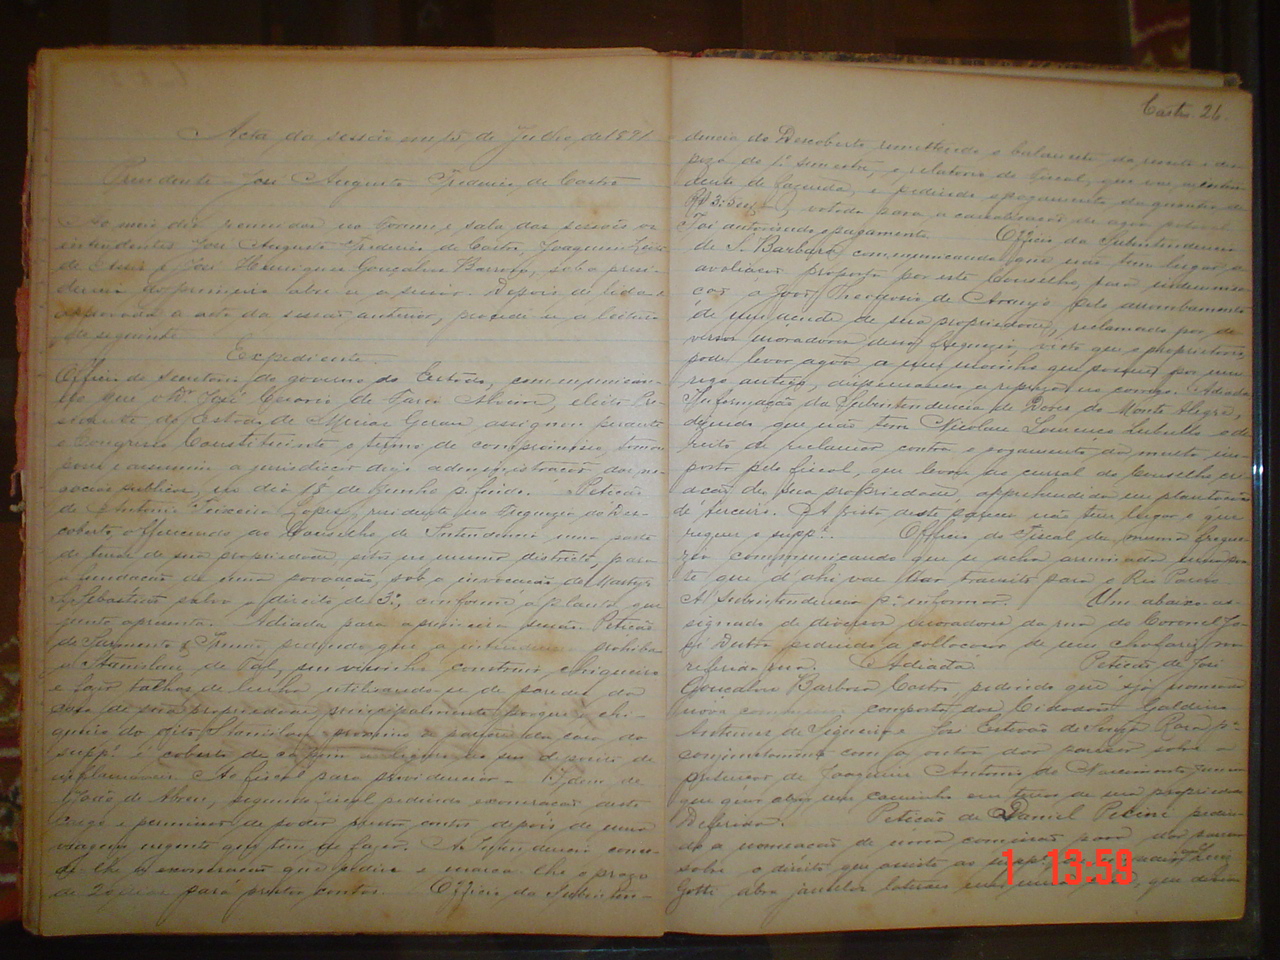 Acta da sessão em 15 de Julho, de 1891
Presidente José Augusto Frederico de Castro
Ao meio dia reunidos no Forum e sala das sessões os
intendentes José Augusto Frederico de Castro, Joaquim
de Assis e José Henriques Gonçalves Barroso, sob a presi-
dencia do primeiro abre se a sessão. Depois de lida e
approvada a acta da sessão anterior, procede se a leitura
do seguinte
Expediente
Officio do Secretario do governo do Estado, communican-
do que o Dr. José Cesario de Faria Alvim, eleito Pre-
sidente do Estado de Minas Geraes assignou perante
o Congresso Constituinte o termo de compromisso, tomou
posse e assumiu a jurisdicção da administração dos ne-
gocios publicos, no dia 15 de Junho p. findo. Petição
de Antonio Teixeira Lopes, residente na freguezia do Des-
coberto, offerecendo ao Conselho de Intendencia uma parte
de terras de sua propriedade, sitas no mesmo districto, para
a fundação de uma povoação, sob a invocação de Martyr
S. Sebastião salvo o direito de 3º, conforme a planta que
junto apresenta. Adiada para a proxima sessão. Petição
de Sarmento & Irmão pedindo que a intendencia prohiba
a Stanislau de Tal, seu visinho construir chiqueiro
e fazer talhas de lenha utilisando se de paredes da
casa de sua propriedade, principalmente porque o chi-
queiro do dito Stanislau proximo a parede da casa do
supp.e é coberto de capim e
inflamavel. Ao fiscal para providenciar. Idem de
João de Abreu, segundo fiscal pedindo exoneração deste
cargo e permissão de poder prestar contas depois de uma
viagem urgente que tem de fazer. A Intendencia conce-
de-lhe a exoneração que pedira marca lhe o prazo
de 20 dias para prestar contas. Officio da Subinten-
Castro. 26.
dencia do Descoberto remettendo o balancete da receita e des-
peza do 1º semestre, e relatorio do fiscal, que vae ao inten-
dente de Lacerda, e pedindo o pagamento da quantia de
votada para a canalisação de agua potavel
Foi autorisado o pagamento Officio da Subintendencia
de S. Barbara communicando que não tem lugar a
avaliação proposta por este Conselho, para indemnisa-
ção a João Theodosio de Araujo pelo arrombamento
de um açude de sua propriedade, reclamado por di-
versos moradores dessa freguezia, visto que o proprietario,
pode levar agua a seu moinho que possue por um
rego antigo, dispensando a represa no corrego. Adiada
Informação da Subintendencia de Dores do Monte Alegre,
dizendo que não tem Nicolau Lourenço o di-
reito de reclamar contra o pagamento da multa im-
posta pelo fiscal, que levou ao curral do Conselho
de sua propriedade, apprehendida em plantações
de terceiro. A vista deste parecer não tem lugar o que
requer o supp.e. Officio do Fiscal da mesma fregue-
zia communicando que se acha arruinada uma pon-
te que d'ahi vae dar transito para o Rio
A' Subintendencia p.a informar. Um abaixo as-
signado de diversos moradores da rua do Coronel Jo-
sé Dutra pedindo a collocação de um chafariz na
referida rua. Adiada Petição de José
Gonçalves Barbosa Castro, pedindo que seja nomeada
nova commissão composta dos Cidadãos Galdino
Antunes de Siqueira e José Estevão de Souza Rosa p.a
conjuntamente com a outra dar parecer sobre a
pretenção de Joaquim Antonio do Nascimento Junior
que quer abrir um caminho em terras de sua propriedade
Deferida. Petição de Daniel Pecini pedin-
do a nomeação de uma commissão para dar parecer
sobre o direito que assiste ao supp.e
abra janellas lateraes em que
1 13:59